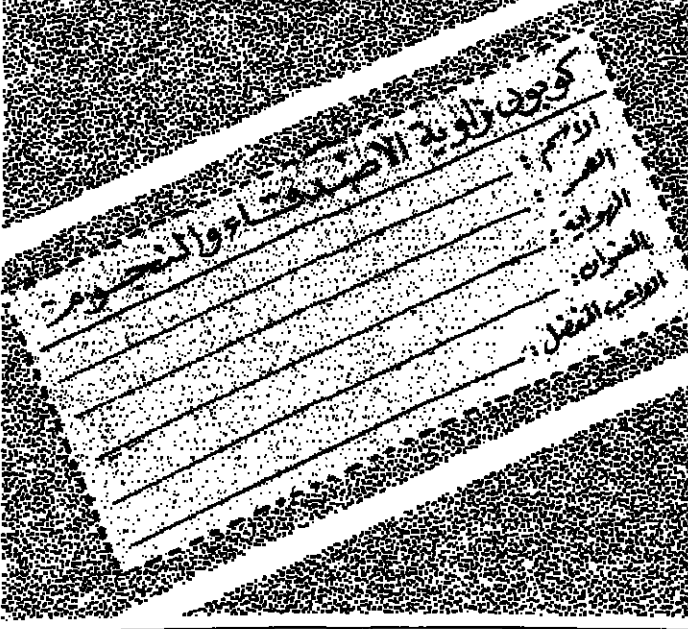 كوبون زاوية الاصدقاء والنجوم
الاسم :
العمر :
الهواية :
العنوان :
اللاعب المفضل :